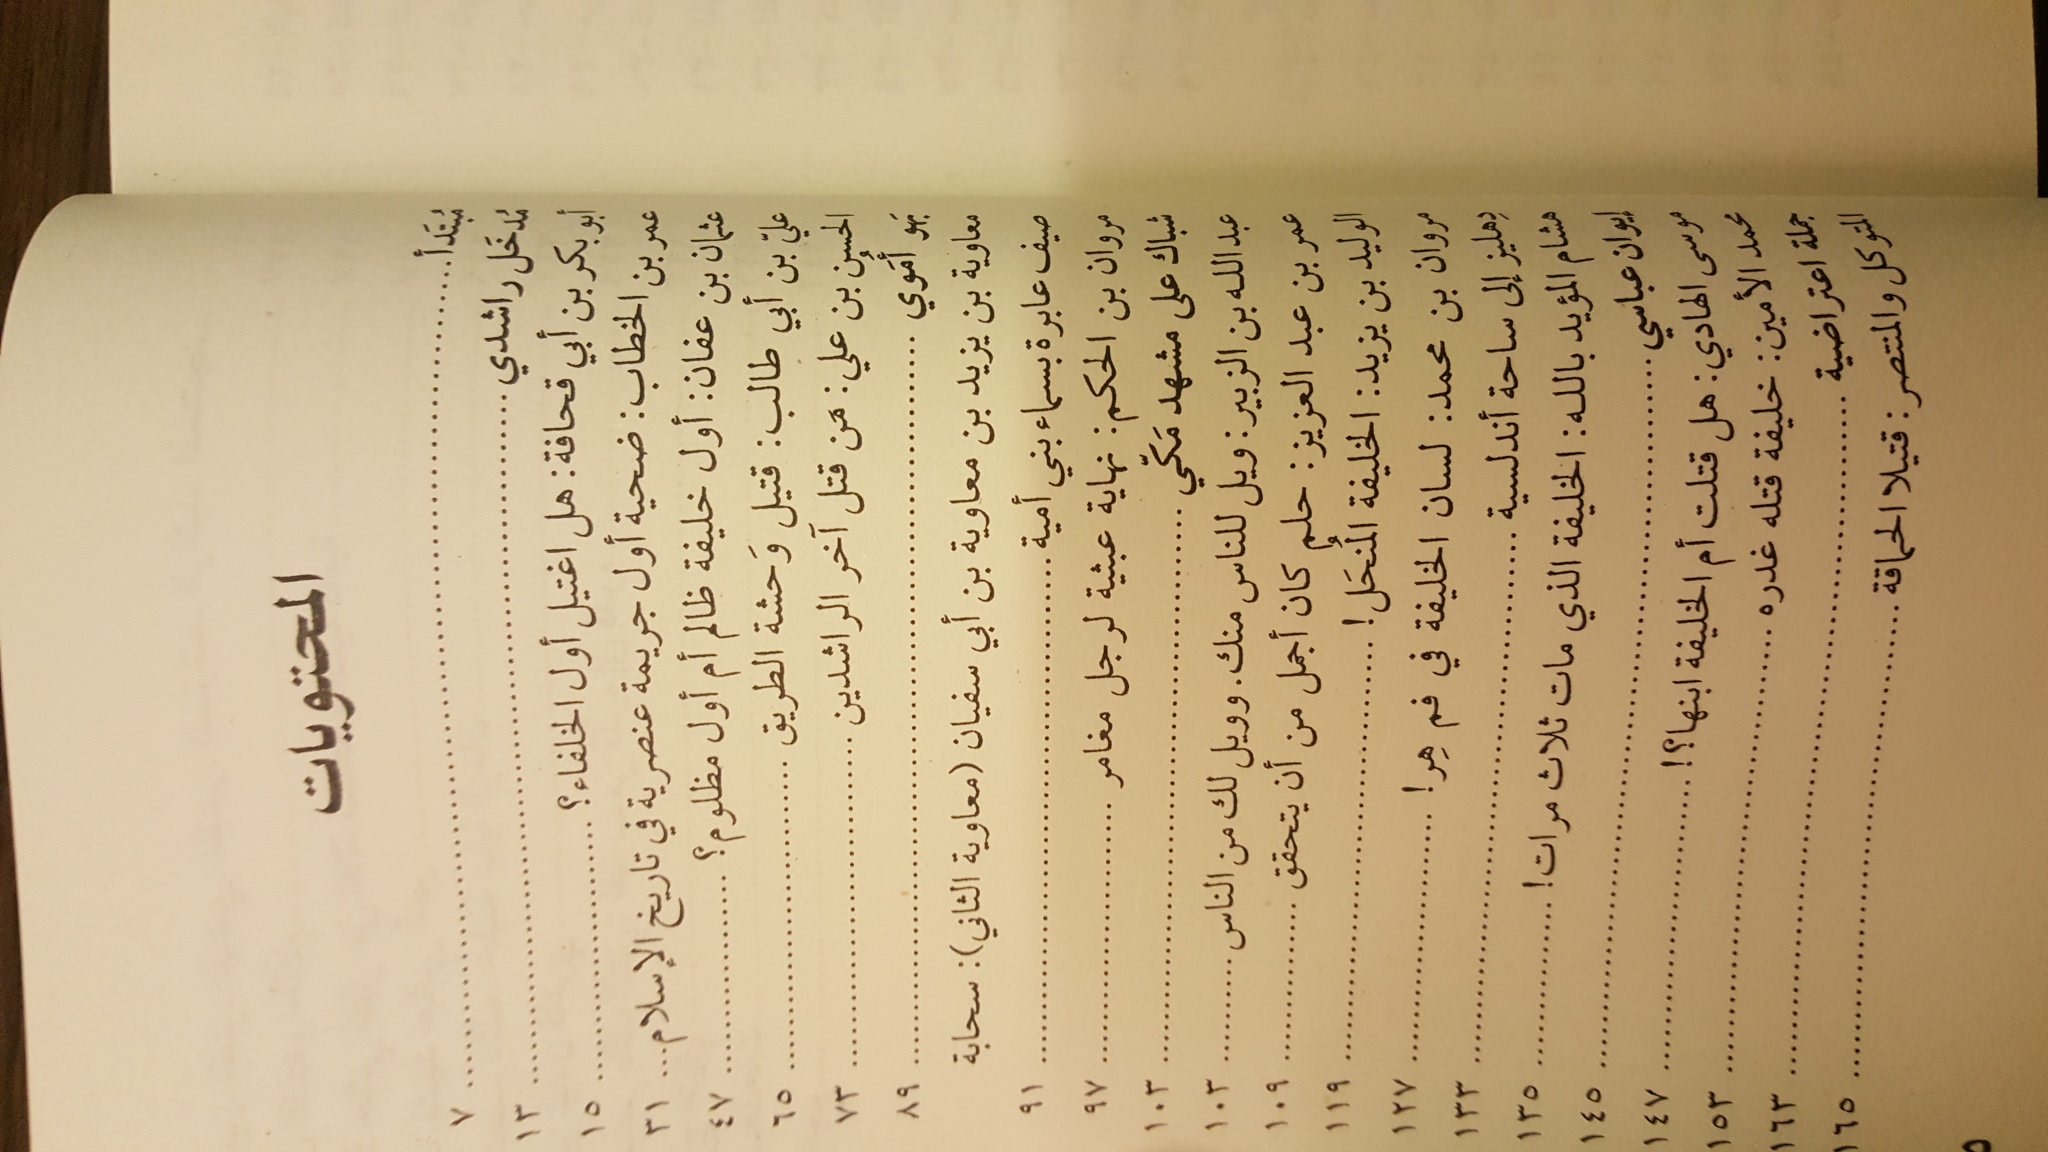 المحتويات
مُبتَدَأ ........ ٧
مُدخَل راشدي ........ ١٣
أبو بكر بن أبي قحافة: هل اغتيل أول الخلفاء؟ ........ ١٥
عمر بن الخطاب: ضحية أول جريمة عنصرية في تاريخ الإسلام ... ٣١
عثمان بن عفان: أول خليفة ظالم أم أول مظلوم؟ ........ ٤٧
عليّ بن أبي طالب: قتيل وَحشة الطريق ........ ٦٥
الحسن بن علي: مَن قتل آخر الراشدين ........ ٧٣
بَهو أُمَوي ........ ٨٩
معاوية بن يزيد بن معاوية بن أبي سفيان (معاوية الثاني): سحابة
صيف عابرة بسماء بني أمية ........ ٩١
مروان بن الحكم: نهاية عبثية لرجل مغامر ........ ٩٧
شباك على مشهد مَكّي ........ ١٠٣
عبد الله بن الزبير: ويل للناس منك. وويل لك من الناس ........ ١٠٣
عمر بن عبد العزيز: حلم كان أجمل من أن يتحقق ........ ١٠٩
الوليد بن يزيد: الخليفة المُنحَل! ........ ١١٩
مروان بن محمد: لسان الخليفة في فم هِر! ........ ١٢٧
دِهليز إلى ساحة أندلسية ........ ١٣٣
هشام المؤيد بالله: الخليفة الذي مات ثلاث مرات! ........ ١٣٥
إيوان عباسي ........ ١٤٥
موسى الهادي: هل قتلت أم الخليفة ابنها؟! ........ ١٤٧
محمد الأمين: خليفة قتله غدره ........ ١٥٣
جملة اعتراضية ........ ١٦٣
المتوكل والمنتصر: قتيلا الحماقة ........ ١٦٥
٥